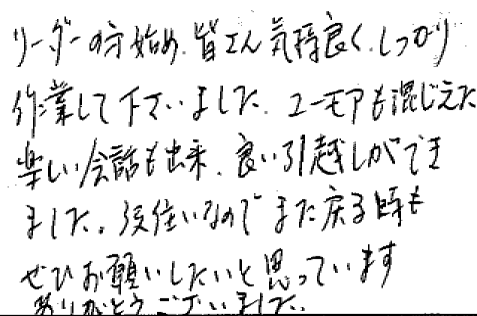 リーダーの方始め、皆さん気持良く、しっかり
作業して下さいました。ユーモアも混じえた
楽しい会話も出来、良い引越しができ
ました。仮住いなので また戻る時も
ぜひお願いしたいと思っています
ありがとうございました。